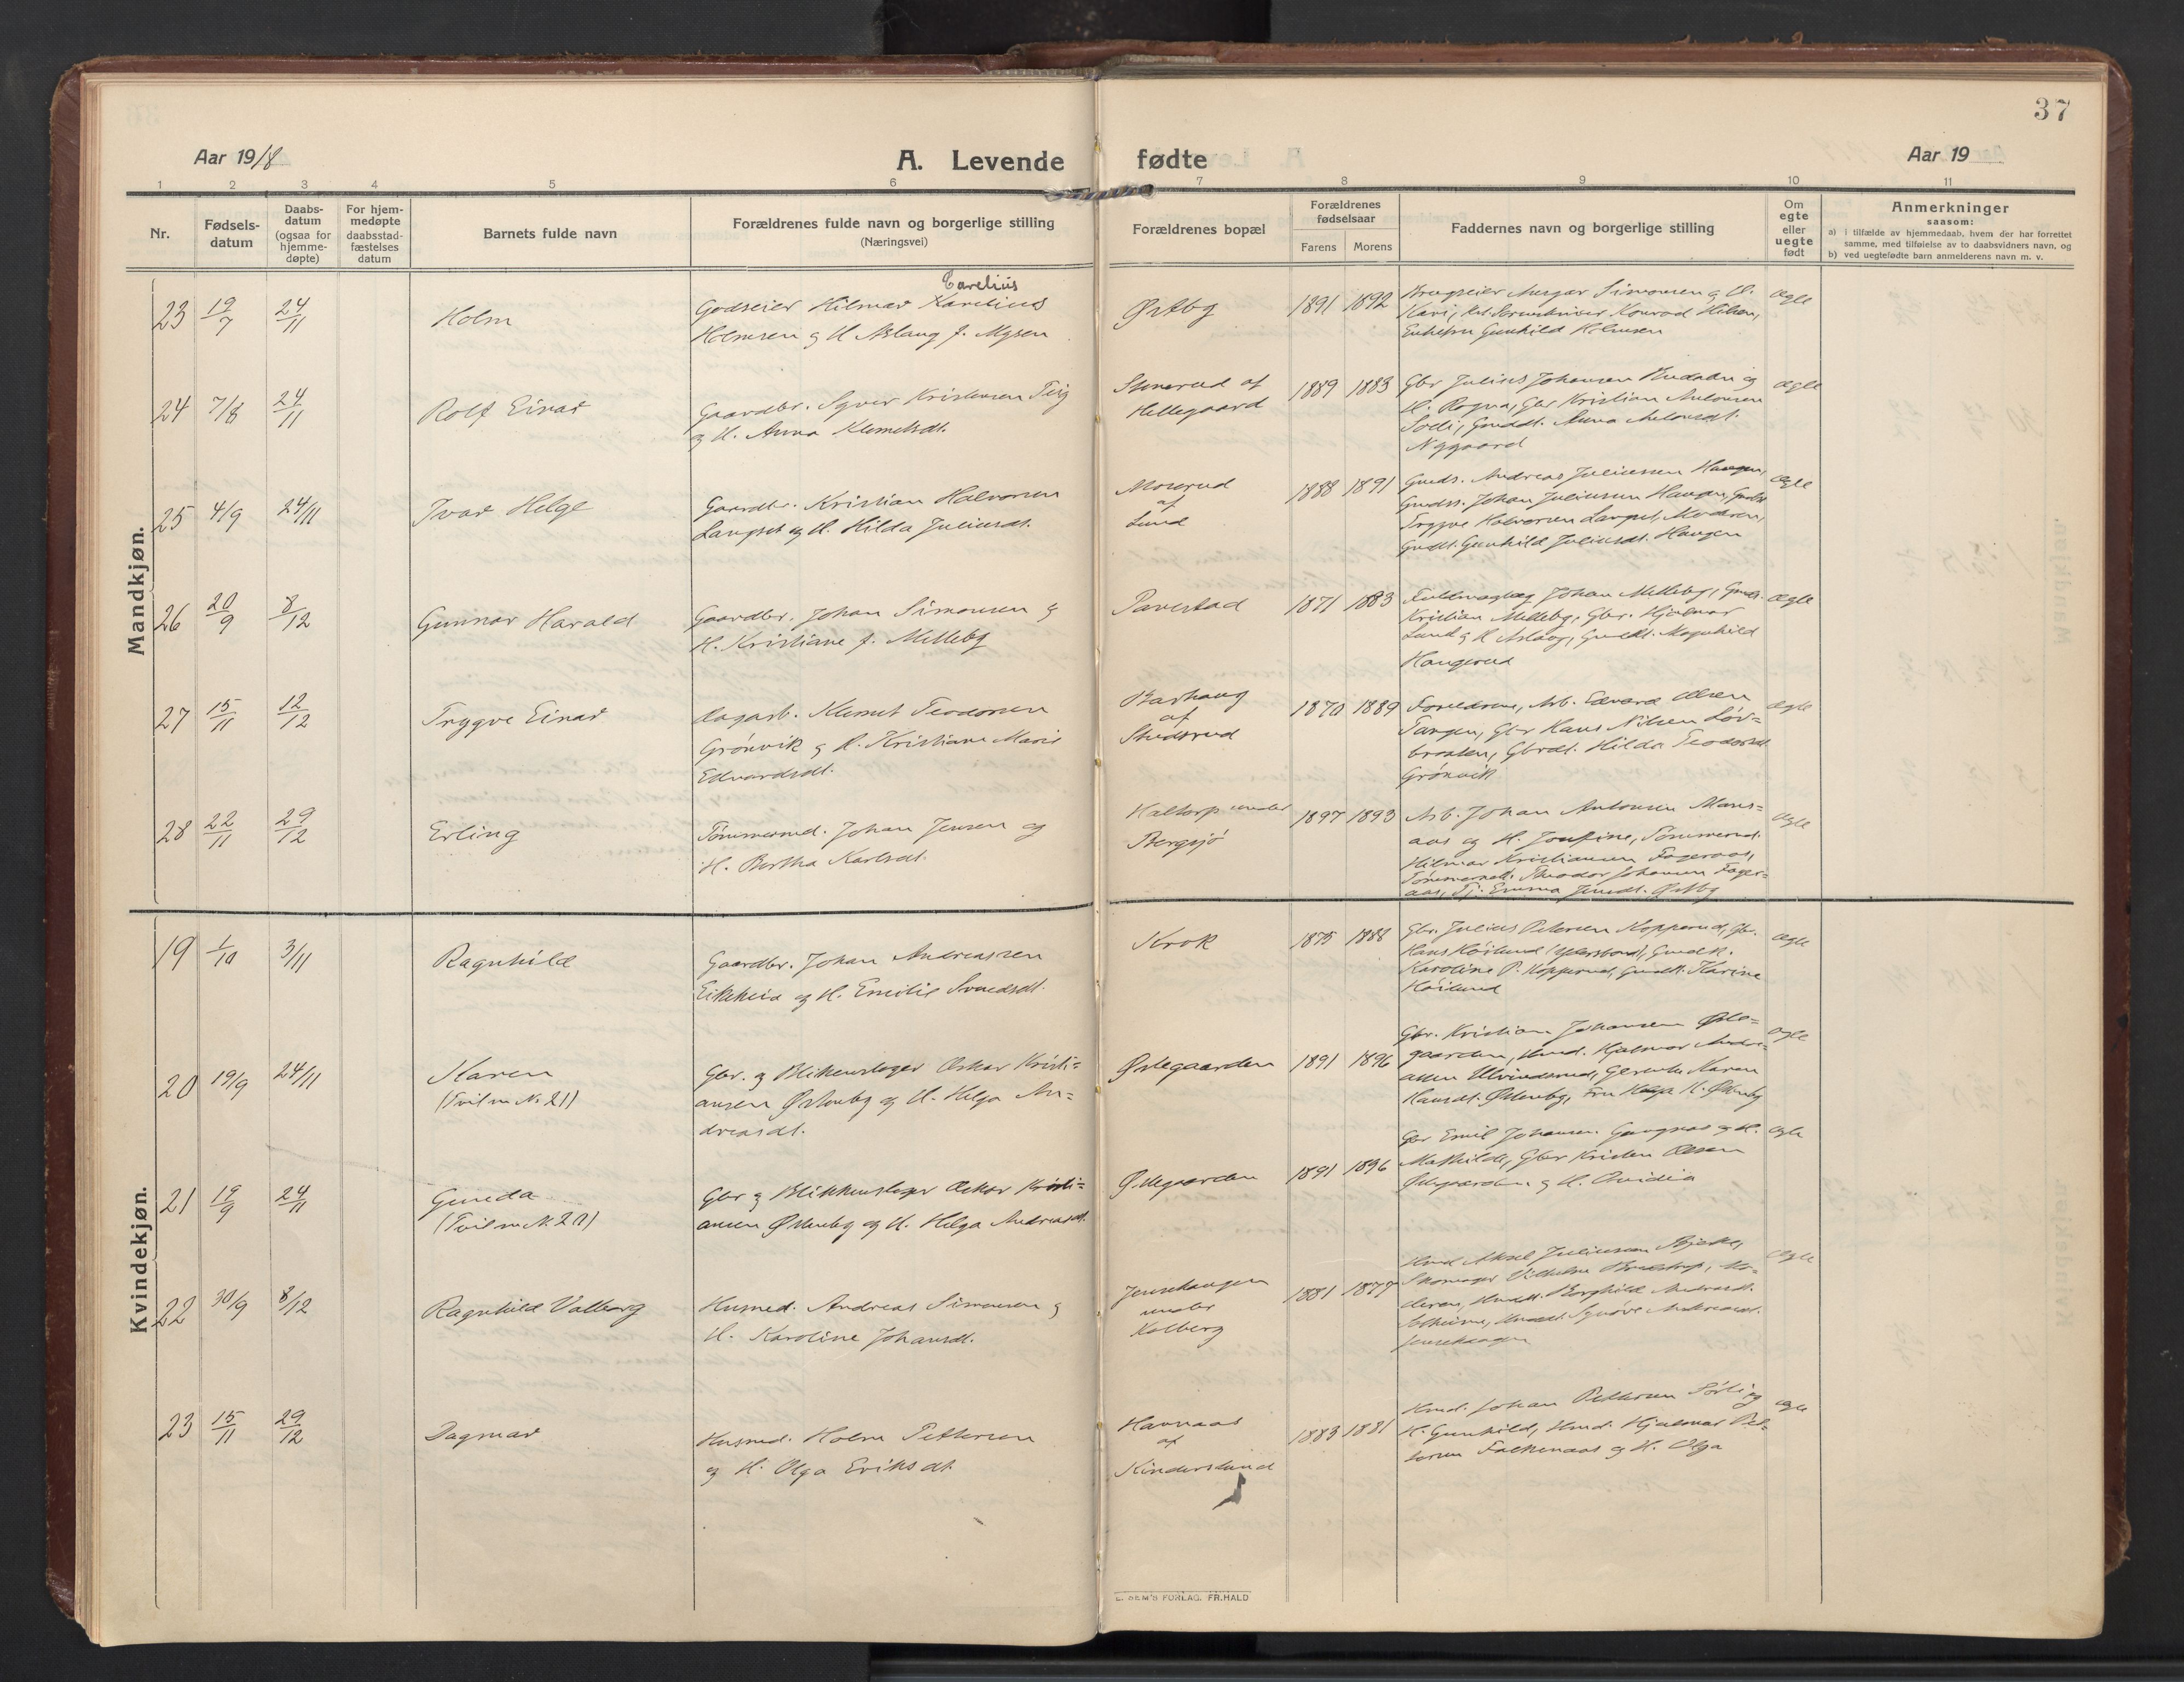 37
Aar 1918
A. Levende fødte
Aar 19
1 2 3 4 5 6 7 8 9 10 11
Nr.
Fødsels-
datum
Daabs-
datum
(ogsaa for
hjemme-
døpte)
For hjem-
medøpte
daabsstad-
fæstelses
datum
Barnets fulde navn
Forældrenes fulde navn og borgerlige stilling
(Næringsvei)
Forældrenes bopæl
Forældrenes
fødselsaar
Farens Morens
Faddernes navn og borgerlige stilling
Om
egte
eller
uegte
født
Anmerkninger
saasom:
a) i tilfælde av hjemmedaab, hvem der har forrettet
samme, med tilføielse av to daabsvidners navn, og
b) ved uegtefødte barn anmelderens navn m. v.
Mandkjøn.
23 19/7 24/11
Holm
Carelius
Godseier Hilmar Karelius
Holmsen g H. Aslaug f. Mysen
Østby
1891 1892
Simonsen g H.
Kari, Konrad Nilsen,
Gunhild Holmsen
egte
24 7/8 24/11
Rolf Einar
Gaardbr. Syver Kristensen Teig
g H. Anna Klemetsdt.
Stenerud af
Hellegaard
1889 1883
Gbr Julius Johansen og
H. Ragna, Gbr Kristian Antonsen
Anna
Nygaard
egte
25 4/9 24/11
Ivar Helge
Gaardbr. Kristian Halvorsen
Langset og H. Hilda Juliusdt.
Moserud
af
Lund
1888 1891
Gmds. Andreas Juliussen Haugen,
Gmdss. Johan Juliussen Haugen,
Trygve Halvorsen Langset, Moderen,
Gmdt. Gunhild Juliusdt. Haugen
egte
26 20/9 8/12
Gunnar Harald
Gaardbr. Johan Simonsen g
H. Kristiane f. Melleby
Tavestad
1871 1883
Johan Melleby,
Kristian Melleby, Gbr. Hjalmar
Lund g H Aslaug, Magnhild
Haugerud
egte
27 15/11 12/12
Trygve Einar
Dagarb. Klemet Teodorsen
Grønvik g H. Kristiane Marie
Edvardsdt.
Barhaug
af
Studsrud
1870 1889
Forældrene, Arb. Edvard Olsen
Tangen, Gbr Hans Nilsen Løv=
braaten, Gbrdt. Hilda Teodorsdt.
Grønvik
egte
28 22/11 29/12
Erling
Tømmermd. Johan Jensen og
H. Bertha Karlsdt.
Kaltorp under
Bergsjø
1897 1893
Arb. Johan Antonsen Mans=
aas og H. Josefine, Tømmermd.
Hilmar Kristiansen Fageraas,
Tømmermd. Theodor Johansen Fager=
aas, Tj. Emma Jensdt. Østby
egte
Kvindekjøn.
19 1/10 3/11
Ragnhild
Gaardbr. Johan Andreassen
Eikheia og H. Emilie
Krok
1875 1888
Gbr. Julius Petersen Kopperud, Gbr.
Hans Høilund
Karoline P. Kopperud, Karine
Høilund
egte
20 19/9 24/11
Karen
(Tvil m N. 21)
Gbr. og Blikenslager Oskar Kristi=
ansen Østenby og H. Helga An=
dreasdt.
Østegaarden
1891 1896
Gbr. Kristian Johansen Øste=
gaarden, Hjalmar Andre=
asen Karen
Hansdt. Østenby, Fru Helga H. Østenby
egte
21 19/9 24/11
Guneda
(Tvil m N. 20)
Gbr g Blikkenslager Oskar Kristi=
ansen Østenby og H. Helga Andreasdt.
Østegaarden
1891 1896
Gbr Emil Johansen og H.
Mathilde, Gbr Kristen Olsen
Østegaarden g H. Ovidia
egte
22 30/9 8/12
Ragnhild Valborg
Husmd. Andreas Simonsen g
H. Karoline Johansdt.
Jensehaugen
under
Kolberg
1881 1877
Hmd Aksel Juliussen Bjerke,
Skomager Vilhelm Mo=
deren, Borghild
Synøve Andreasdt.
Jensehaugen
egte
23 15/11 29/12
Dagmar
Husmd. Holm Pettersen
og H. Olga Eriksdt.
Havnaas
af
Kinderslund
1883 1881
Hmd. Johan Pettersen Sørli og
H. Gunhild, Hmd. Hjalmar Pet=
tersen Falkenaas og H. Olga
egte
E. SEM'S FORLAG. FR.HALD